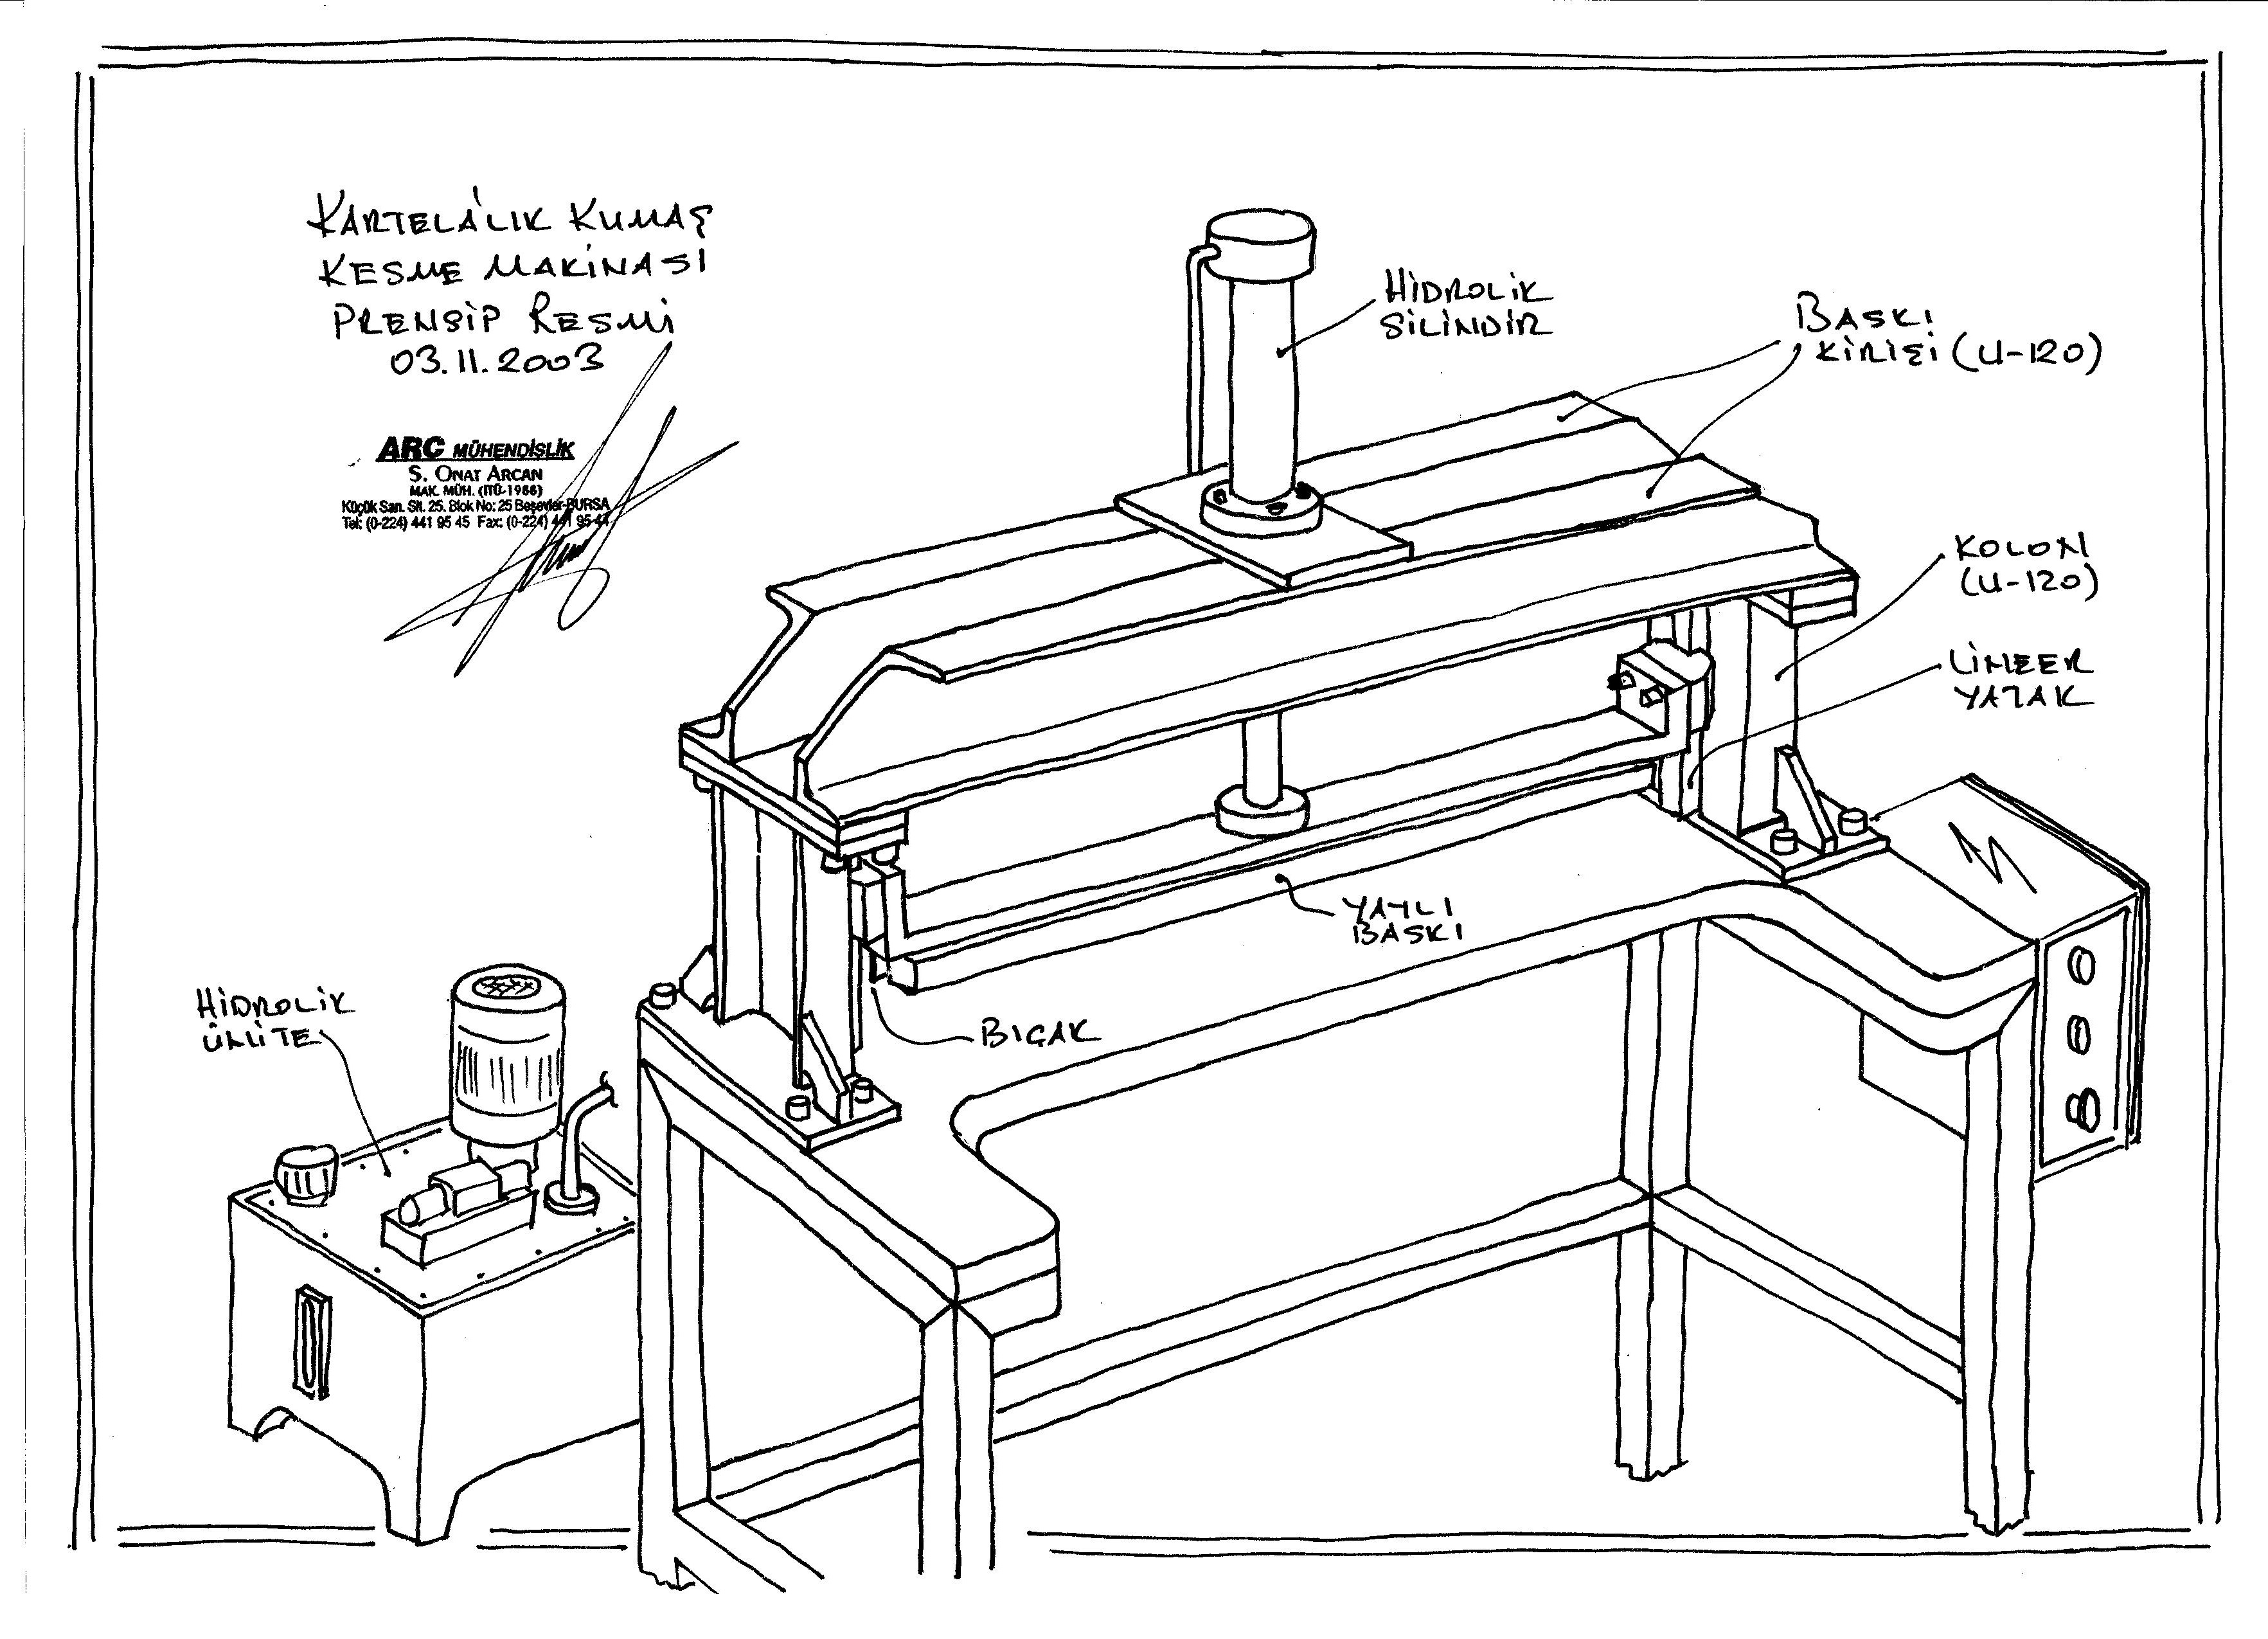 KARTELA'LIK KUMAŞ
KESME MAKİNASI
PRENSİP RESMİ
03.11.2003
ARC MÜHENDİSLİK
S. ONAT ARCAN
MAK. MÜH. (İTÜ-1988)
Küçük San. Sit. 25. Blok No: 25 Beşevler-BURSA
Tel: (0-224) 441 95 45 Fax: (0-224) 441 95 44
HİDROLİK
SİLİNDİR
BASKI
KİRİŞİ (U-120)
KOLON
(U-120)
LİNEER
YATAK
YAYLI
BASKI
BIÇAK
HİDROLİK
ÜNİTE